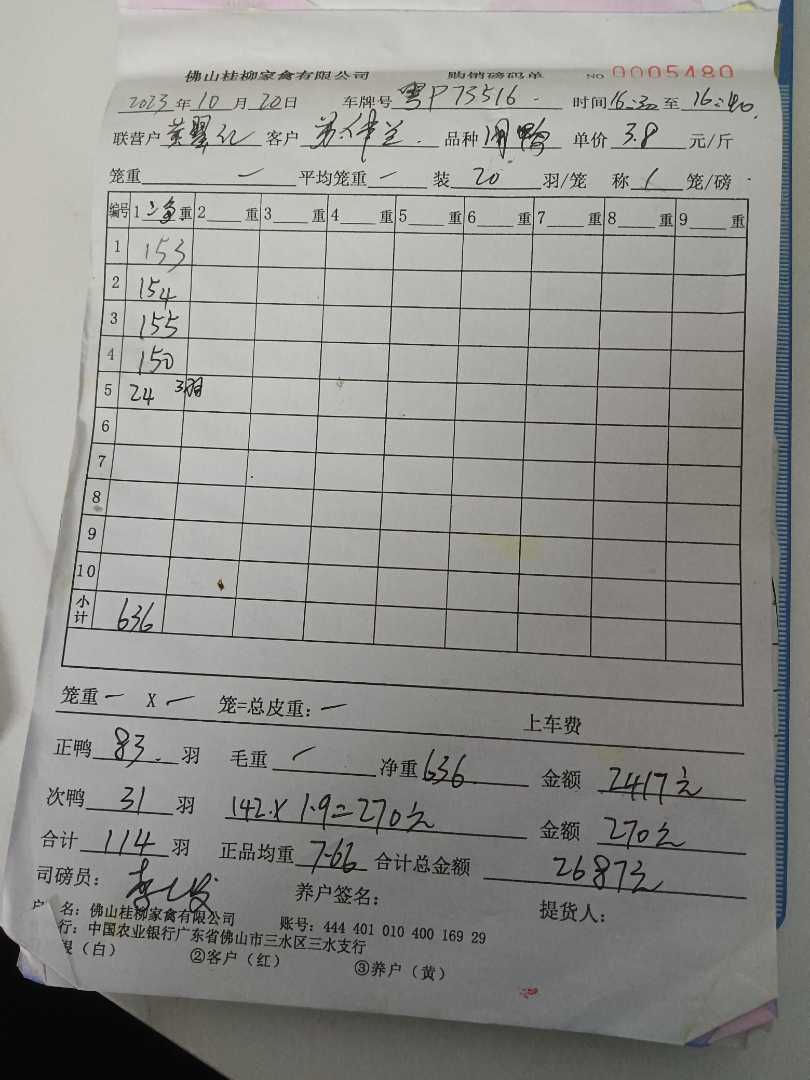 佛山桂柳家禽有限公司 购销磅码单 NO 0005480
2023年10月20日 车牌号 粤P73516 时间16:30至16:40
联营户 客户 品种 单价 3.8 元/斤
笼重 一 平均笼重 一 装 20 羽/笼 称 1 笼/磅
编号 1 重 2 重 3 重 4 重 5 重 6 重 7 重 8 重 9 重
1 153
2 154
3 155
4 150
5 24 3羽
6
7
8
9
10
小计 636
笼重 一 X 一 笼=总皮重: 一 上车费
正鸭 83 羽 毛重 净重 636 金额 2417元
次鸭 31 羽 142 X 1.9=270元 金额 270元
合计 114 羽 正品均重 7.66 合计总金额 2687元
司磅员: 养户签名: 提货人:
户 名: 佛山桂柳家禽有限公司 账号: 444 401 010 400 169 29
行: 中国农业银行广东省佛山市三水区三水支行
(白) ②客户(红) ③养户(黄)